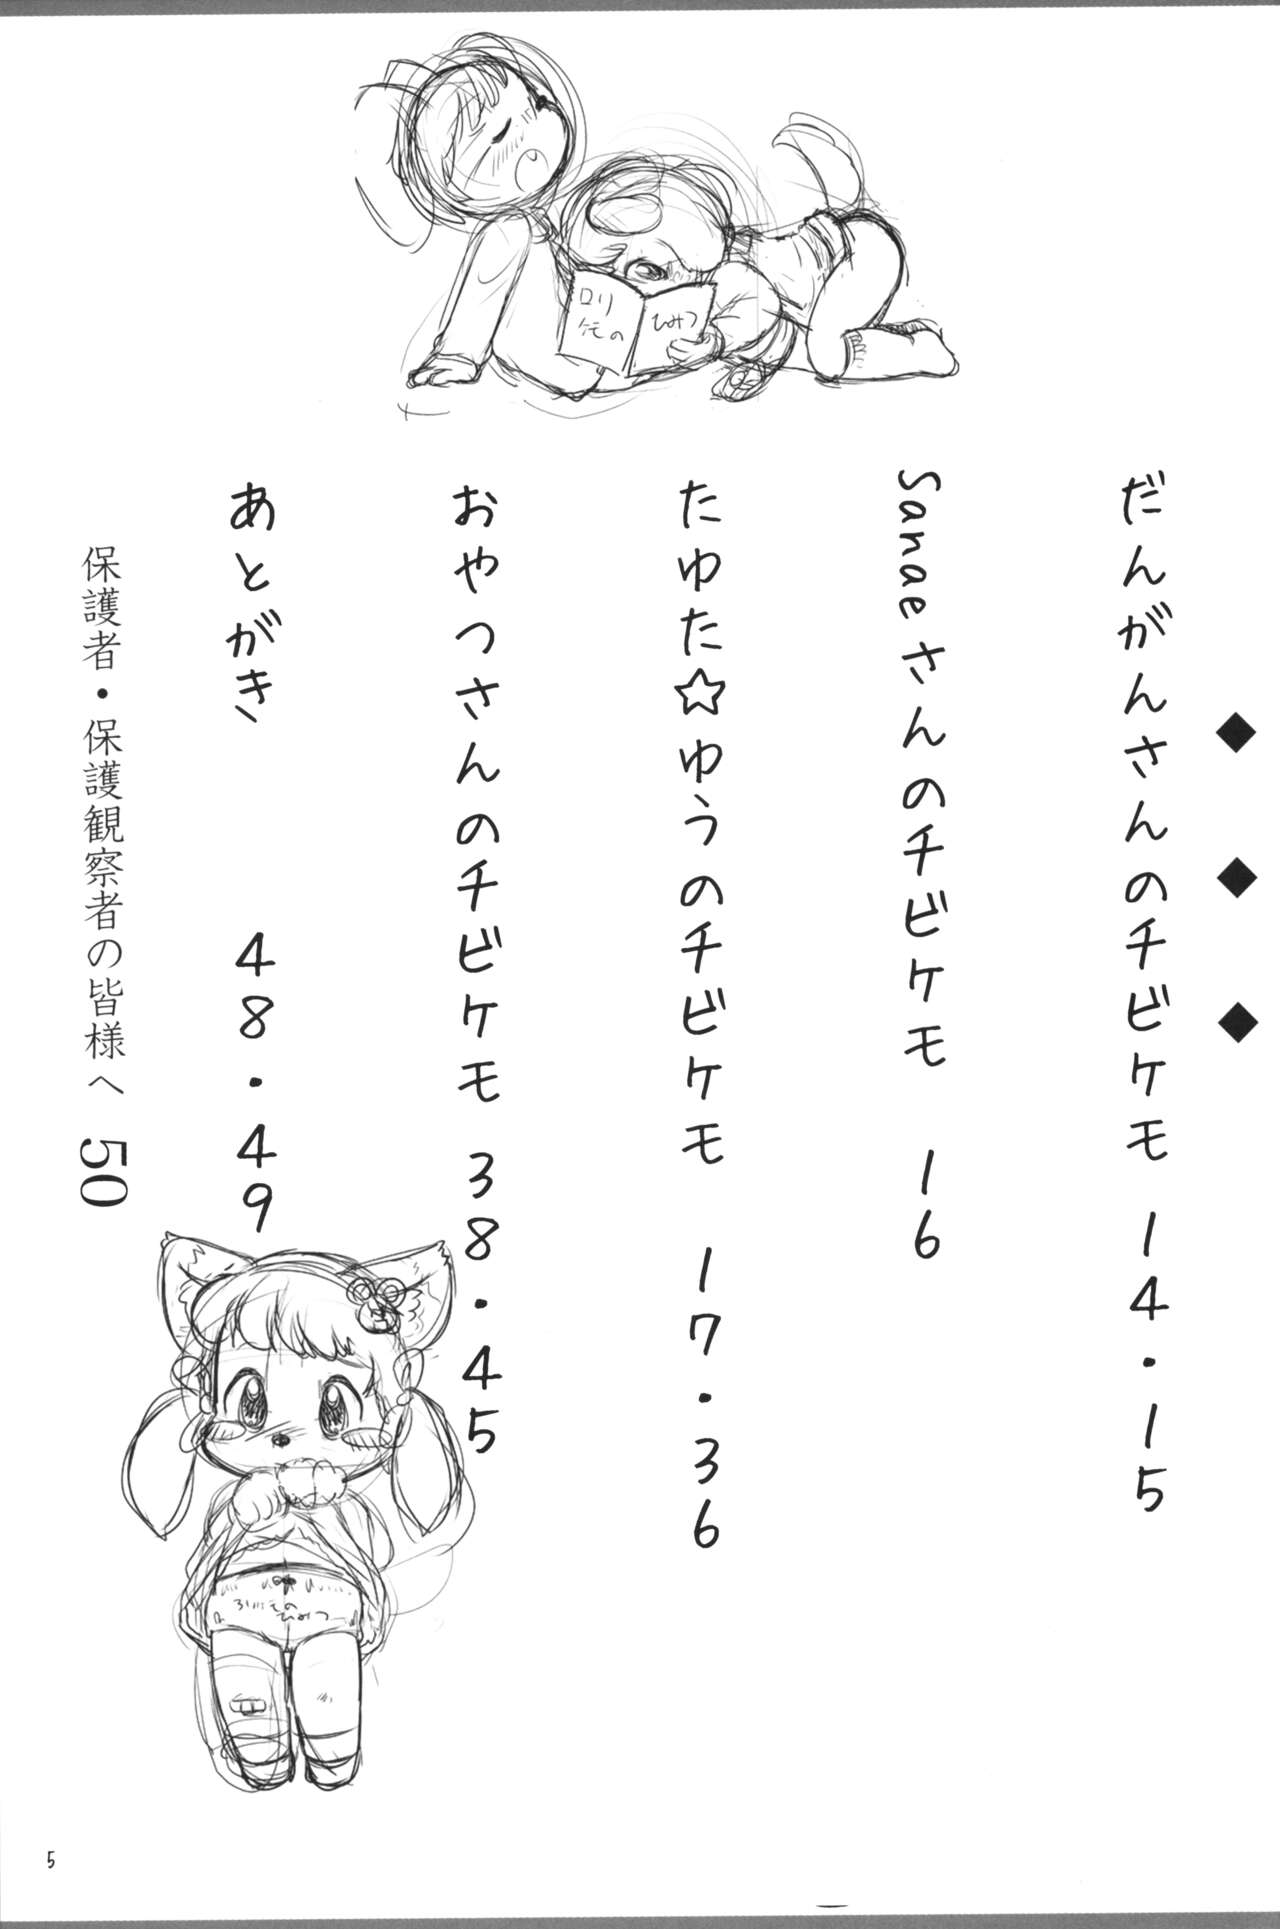 ロリ
ケモの
ひみつ
だんがんさんのチビケモ 14・15
Sanaeさんのチビケモ 16
たゆた☆ゆうのチビケモ 17・36
おやつさんのチビケモ 38・45
あとがき 48・49
保護者・保護観察者の皆様へ 50
5